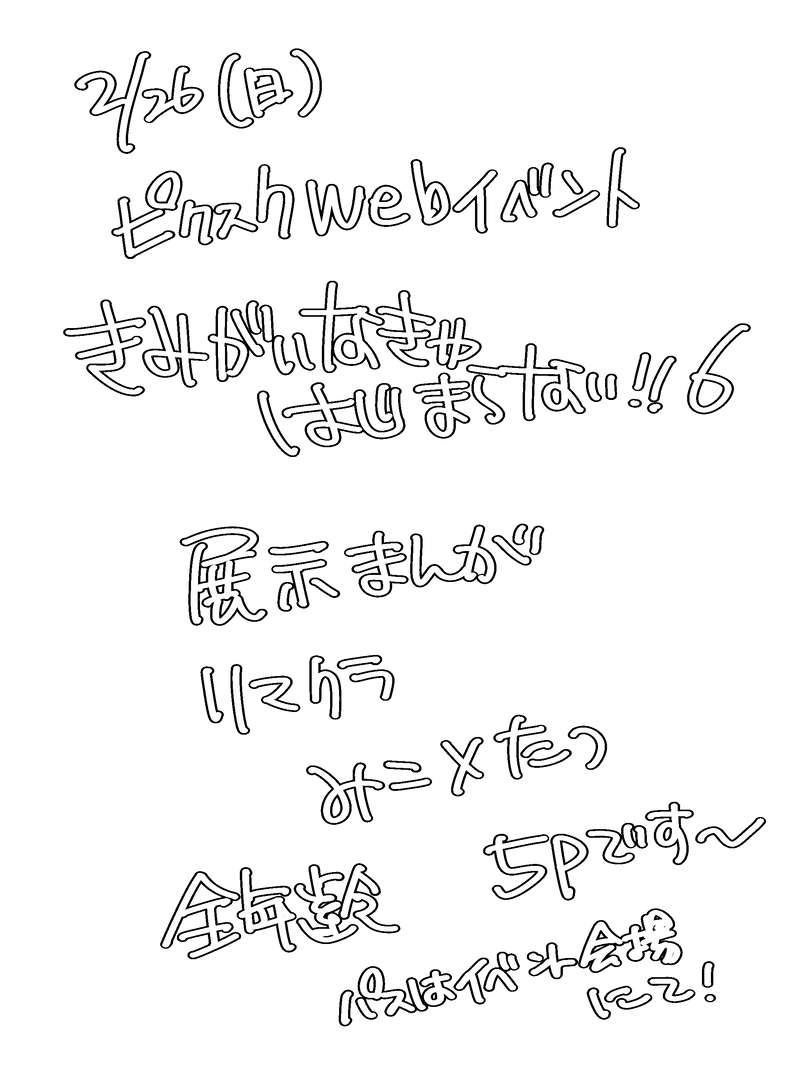 2/26(日)
ピクスクwebイベント
きみがいなきゃ
はじまらない!!6
展示まんが
リマクラ
みこ×たつ
5Pです〜
全年齢
パスはイベント会場
にて!